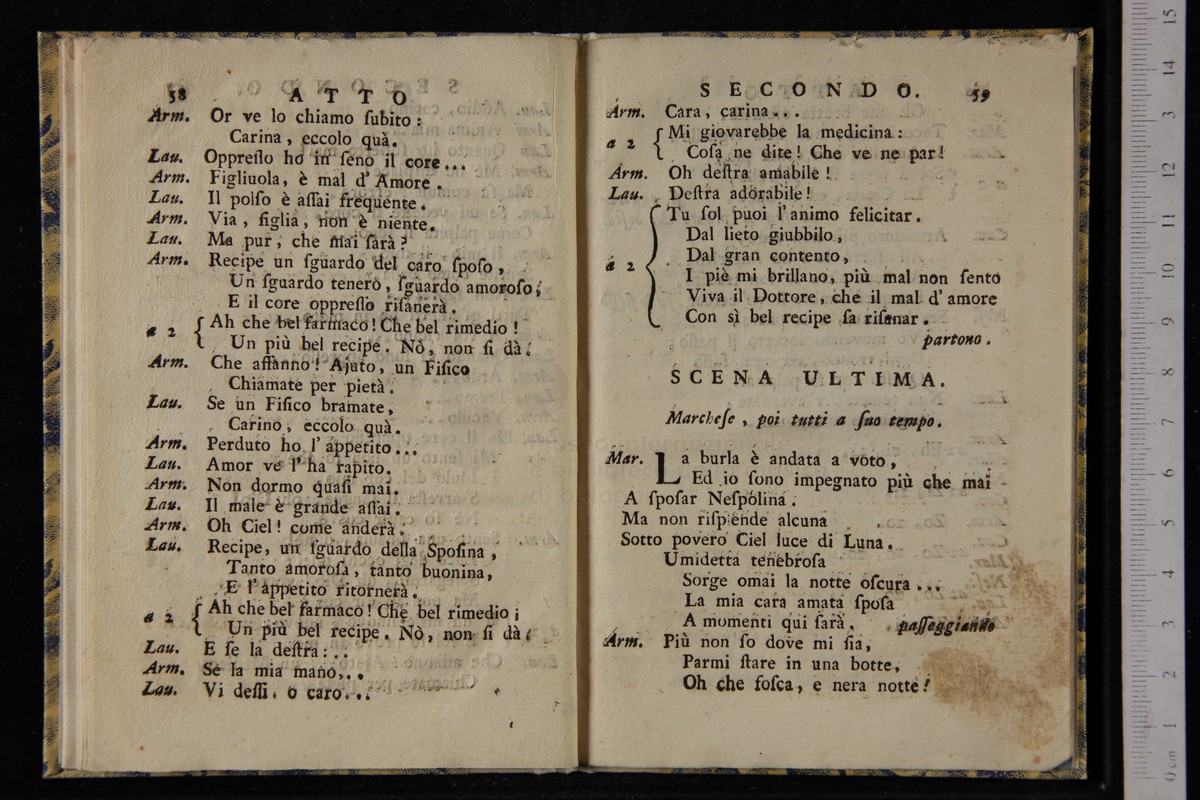 58 ATTO
Arm. Or ve lo chiamo ſubito :
Carina , eccolo quà.
Lau. Oppreſſo ho in ſeno il core...
Arm. Figliuola, è mal d' Amore .
Lau. Il polſo è aſſai frequente .
Arm. Via , figlia , non è niente.
Lau. Ma pur , che mai ſarà ?
Arm. Recipe un ſguardo del caro ſpoſo ,
Un ſguardo tenero , ſguardo amoroſo ;
E il core oppreſſo riſanerà .
a 2 { Ah che bel farmaco ! Che bel rimedio !
Un più bel recipe . Nò, non ſi dà .
Arm. Che affanno ! Ajuto, un Fiſico
Chiamate per pietà .
Lau. Se un Fiſico bramate,
Carino, eccolo quà.
Arm. Perduto ho l' appetito...
Lau. Amor ve l' ha rapito.
Arm. Non dormo quaſi mai.
Lau. Il male è grande aſſai .
Arm. Oh Ciel ! come anderà .
Lau. Recipe, un ſguardo della Spoſina ,
Tanto amoroſa , tanto buonina,
E l' appetito ritornerà .
a 2 { Ah che bel farmaco ! Che bel rimedio ;
Un più bel recipe . Nò, non ſi dà .
Lau. E ſe la deſtra : ..
Arm. Se la mia mano...
Lau. Vi deſſi . o caro...
SECONDO. 59
Arm. Cara , carina ...
a 2 { Mi giovarebbe la medicina :
Coſa ne dite ! Che ve ne par !
Arm. Oh deſtra amabile !
Lau. Deſtra adorabile !
Tu ſol puoi l' animo felicitar .
Dal lieto giubbilo ,
Dal gran contento ,
a 2 { I piè mi brillano, più mal non ſento
Viva il Dottore, che il mal d' amore
Con sì bel recipe ſa riſanar .
partono .
SCENA ULTIMA.
Marcheſe , poi tutti a ſuo tempo.
Mar. La burla è andata a voto ,
Ed io ſono impegnato più che mai
A ſpoſar Neſpolina .
Ma non riſplende alcuna
Sotto povero Ciel luce di Luna .
Umidetta tenebroſa
Sorge omai la notte oſcura ...
La mia cara amata ſpoſa
A momenti qui ſarà . paſſeggiando
Arm. Più non ſo dove mi ſia,
Parmi ſtare in una botte,
Oh che foſca, e nera notte !